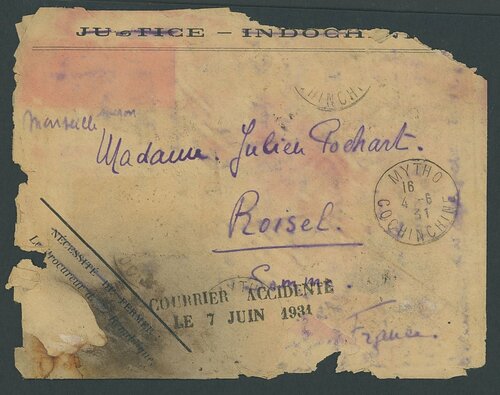 JUSTICE – INDOCH
COCHINCHI
Marseille
Madame. Julien Pochart.
MYTHO
16
4 -6
31
COCHINCHINE
Roisel.
NÉCESSITÉ DE FERMER
Le Procureur
Somme.
COURRIER ACCIDENTÉ
LE 7 JUIN 1931
France.